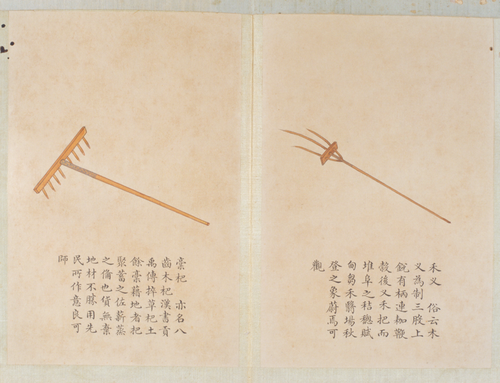 禾叉 俗云木
叉為制三股上
銳有柄連枷鞭
殼後叉禾把而
堆阜之秸穗賦
甸芻禾場秋
登之象蔚焉可
觀
槀杷 亦名八
齒木杷漢書貢
禹傳捽草杷土
餘槀藉地者杷
聚蓄之佐薪蒸
之備也貨無棄
地材不賤用先
民所作意良可
師